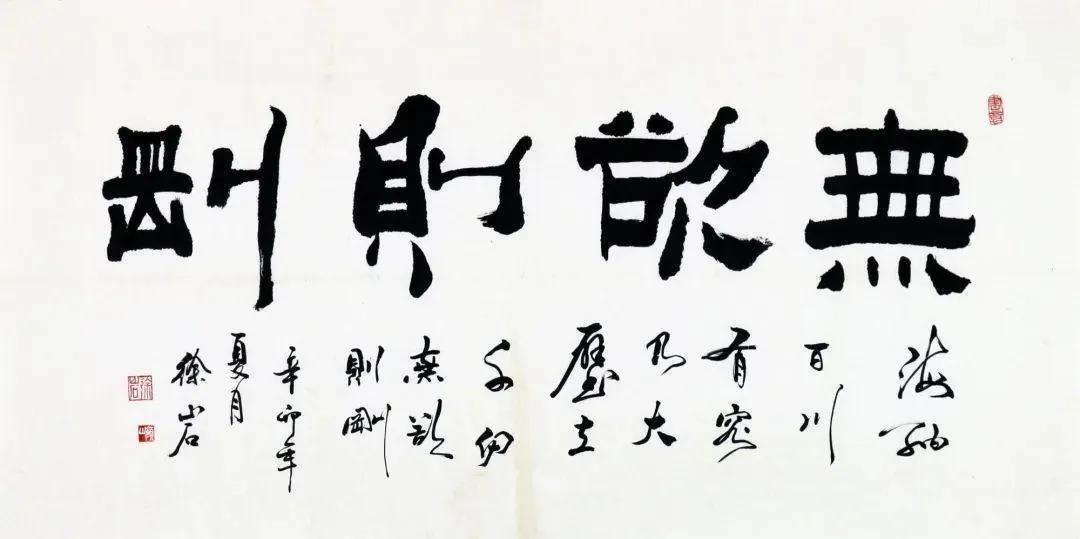 無欲則剛
海納
百川
有容
乃大
壁立
千仞
無欲
則剛
辛卯年
夏月
徐岩